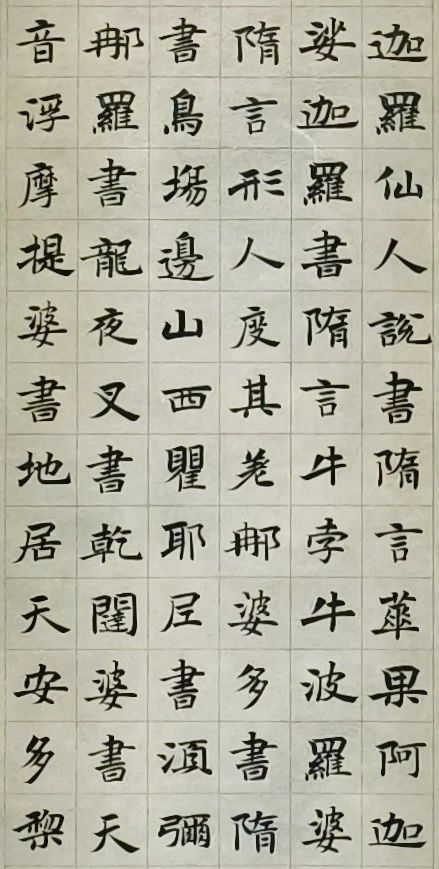 迦羅仙人說書隋言華果阿迦
娑迦羅書隋言牛孛牛波羅婆
隋言形人度其差那婆多書隋
書鳥場邊山西瞿耶尼書湏彌
那羅書龍夜叉書乾闥婆書天
音浮摩提婆書地居天安多棃